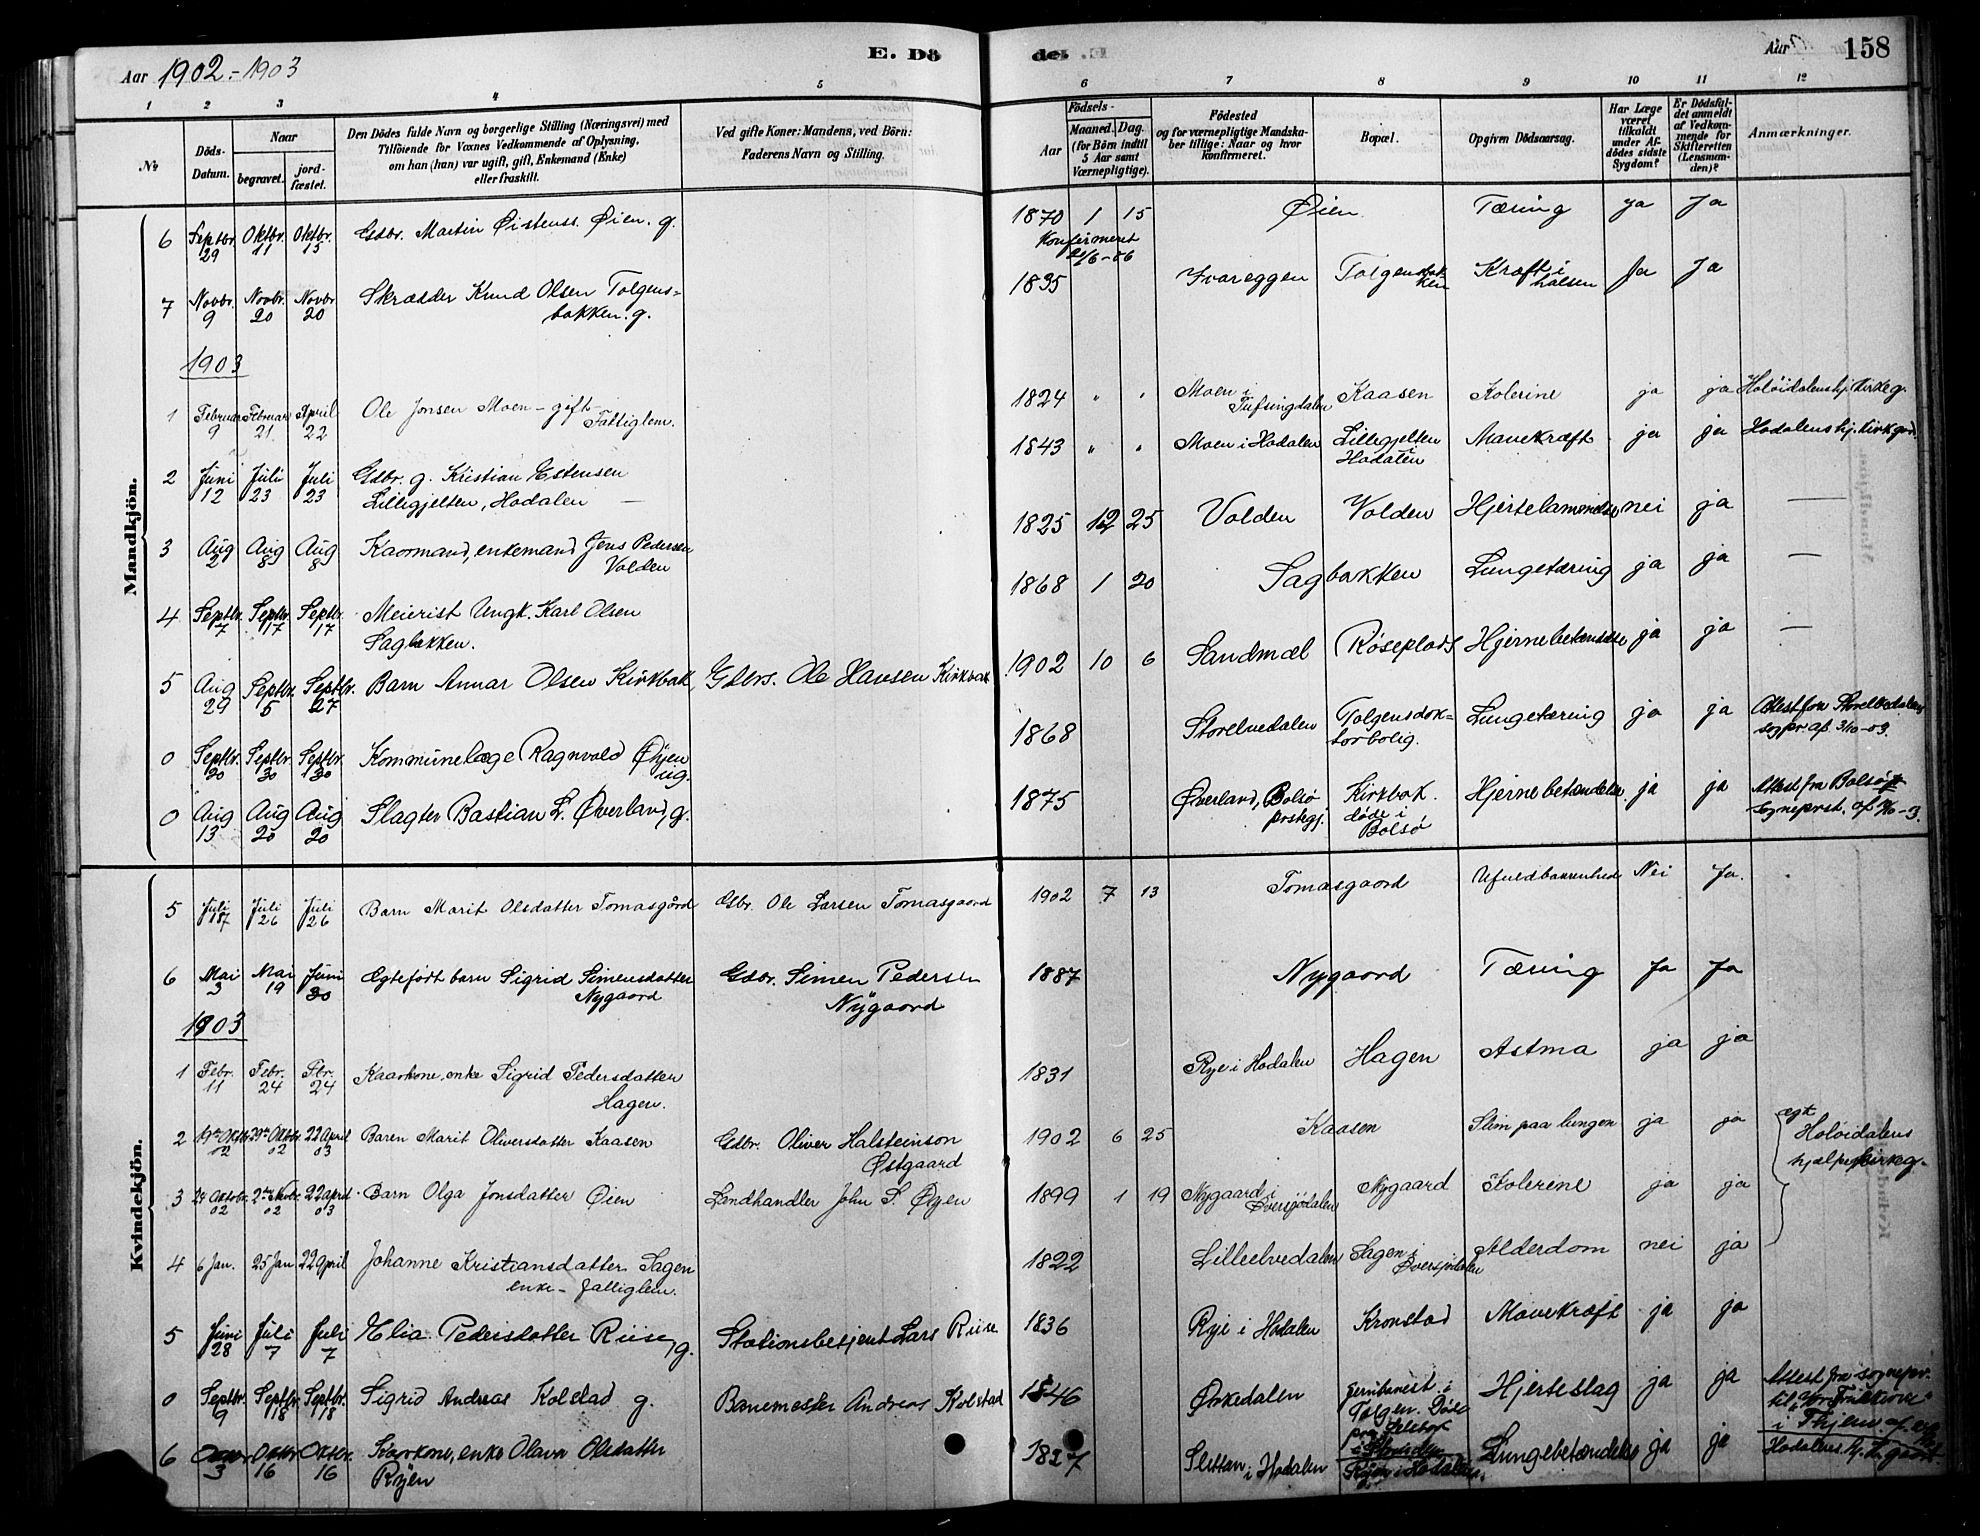 Aar 1902-1903
E. Dö
de.
Aar
158
1 2 3 4 5 6 7 8 9 10 11 12
No
Döds-Datum.
Naar
begravet.
jord-fæstet.
Den Dödes fulde Navn og borgerlige Stilling (Næringsvei) med
Tilföiende for Voxnes Vedkommende af Oplysning,
om han (hun) var ugift, gift, Enkemand (Enke)
eller fraskilt.
Ved gifte Koner: Mandens, ved Börn:
Faderens Navn og Stilling.
Födsels-
Aar
Maaned. Dag.
(for Börn indtil
5 Aar samt
Værnepligtige).
Födested
og for værnepligtige Mandska-
ber tillige: Naar og hvor
konfirmeret.
Bopæl.
Opgiven Dödsaarsag.
Har Læge
været
tilkaldt
under Af-
dödes sidste
Sygdom?
Er Dödsfal-
det anmeldt
af Vedkom-
mende for
Skifteretten
(Lensman-
den)?
Anmærkninger.
Mandkjön.
6 Septbr. 29 Oktbr. 11 Oktbr. 15 Gdbr. Martin Øistenss. Øien. g. 1870 1 15 Øien Tæring Ja Ja
Konfirmeret
7 Novbr. 9 Novbr. 20 Novbr 20 Skrædder Knud Olsen Tolgens-
bakken. g. 1835 Ivareggen Tolgensbakken Kræft i halsen Ja Ja
1903
1 Februar 9 Februar 21 April 22 Ole Jonsen Moen - gift - Fattiglem. 1824 " " Moen i Tufsingdalen Kaasen Kolerine ja ja Holöidalens hj. kirkeg.
2 Juni 12 Juli 23 Juli 23 Gdbr. g. Kristian Estensen
Lillegjelten, Hodalen 1843 " " Moen i Hodalen Lillegjelten Hodalen Mavekræft ja ja Hodalens hj. kirkgard
3 Aug 2 Aug 8 Aug 8 Kaarmand, enkemand Jens Pedersen
Volden 1825 12 25 Volden Volden Hjertelammelse nei ja —
4 Septbr. 7 Septbr. 17 Septbr. 17 Meierist Ungk. Karl Olsen
Sagbakken. 1868 1 20 Sagbakken Lungetæring ja ja —
5 Aug 29 Septbr. 5 Septbr. 27 Barn Annar Olsen Kirkbak Gdbrs. Ole Hansen Kirkbak 1902 10 6 Sandmæl Røseplads Hjernebetændelse ja ja —
0 Septbr. 20 Septbr. 30 Septbr. 30 Kommunelæge Ragnvald Øyen
ug. 1868 Storelvedalen Tolgens dok-
torbolig. Lungetæring ja ja Attest fra Storelvedalens
sogpr. af 3/10-03.
0 Aug 13 Aug 20 Aug 20 Slagter Bastian L. Øverland, g. 1875 Øverland, Bolsø
prstegj. Kirkbak.
døde i
Bolsø Hjernebetændelse ja ja Attest fra Bolsø
Sogneprst. af
Kvindekjön.
5 Juli 17 Juli 26 Juli 26 Barn Marit Olsdatter Tomasgård Gbr. Ole Larsen Tomasgaard 1902 7 13 Tomasgaard Ufuldbaarenhed Nei Ja.
6 Mai 3 Mai 19 Juni 30 Ægtefødt barn Sigrid Simensdatter
Nygaard Gdbr. Simen Pedersen
Nygaard 1887 Nygaard Tæring Ja Ja
1903
1 Febr. 11 Febr. 24 Fbr. 24 Kaarkone, enke Sigrid Pedersdatter
Hagen. 1831 Rye i Hodalen Hagen Astma ja ja
2 19de Oktbr 02 29de Oktbr 02 22 April 03 Baren Marit Oliversdatter Kaasen Gdbr. Oliver Halsteinson
Østgaard 1902 6 25 Kaasen Slim paa lungen ja ja ægt
Holöidalens
hjælpekirkeg.
3 24 Oktbr. 02 22 April 03 Barn Olga Jonsdatter Øien Landhandler John S. Øyen 1899 1 19 Nygaard i
Øversjødalen Nygaard Kolerine ja ja
4 6 Jan. 25 Jan 22 April Johanne Kristiansdatter Sagen
enke - fattiglem. 1822 Lilleelvedalen Sagen i
Øversjødalen Alderdom nei ja
5 Juni 28 Juli 7 Juli 7 Elia Pedersdatter Riise, g. Stationsbetjent Lars Riise 1836 Rye i Hodalen Kronstad Mavekræft ja ja
0 Septbr. 9 Septbr. 18 Septbr. 18 Sigrid Andreas Kolstad g. Banemester Andreas Kolstad 1846 Ørkedalen Jernbanest. i
Tolgen. Døde Hjerteslag ja ja Attest fra sognepr.
til Vor Frue kirke
6 3 Oktbr 16 Oktbr. 16 Kaarkone, enke Olava Olsdatter
Røjen 1827 Sletten i Hodalen Røjen i Hodalen Lungebetændelse ja ja Hodalens hj. k. gaard.